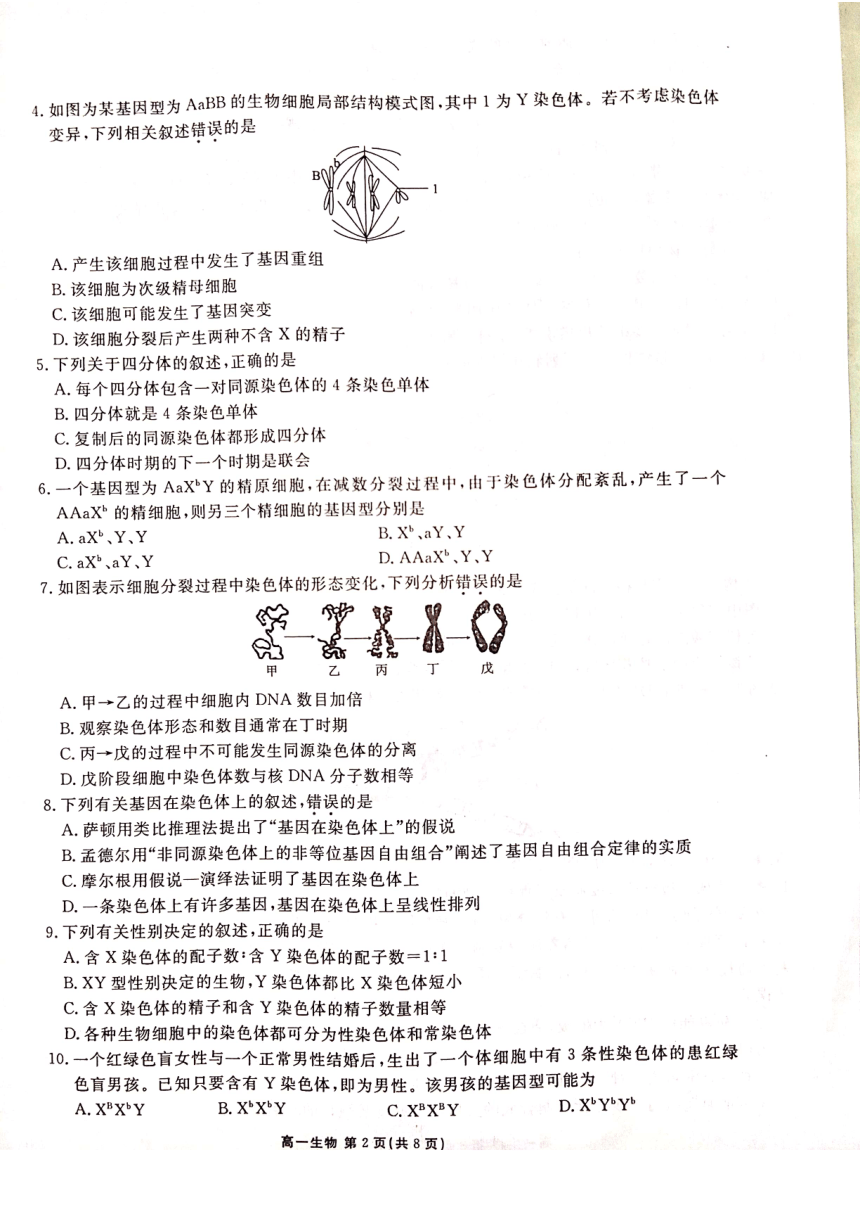 4.如图为某基因型为 AaBB 的生物细胞局部结构模式图,其中 1 为 Y 染色体。若不考虑染色体
变异,下列相关叙述错误的是
B b 1
A.产生该细胞过程中发生了基因重组
B.该细胞为次级精母细胞
C.该细胞可能发生了基因突变
D.该细胞分裂后产生两种不含 X 的精子
5.下列关于四分体的叙述,正确的是
A.每个四分体包含一对同源染色体的 4 条染色单体
B.四分体就是 4 条染色单体
C.复制后的同源染色体都形成四分体
D.四分体时期的下一个时期是联会
6.一个基因型为 AaXᵇY 的精原细胞,在减数分裂过程中,由于染色体分配紊乱,产生了一个
AAaXᵇ 的精细胞,则另三个精细胞的基因型分别是
A.aXᵇ、Y、Y B.Xᵇ、aY、Y
C.aXᵇ、aY、Y D.AAaXᵇ、Y、Y
7.如图表示细胞分裂过程中染色体的形态变化,下列分析错误的是
甲 乙 丙 丁 戊
A.甲→乙的过程中细胞内 DNA 数目加倍
B.观察染色体形态和数目通常在丁时期
C.丙→戊的过程中不可能发生同源染色体的分离
D.戊阶段细胞中染色体数与核 DNA 分子数相等
8.下列有关基因在染色体上的叙述,错误的是
A.萨顿用类比推理法提出了“基因在染色体上”的假说
B.孟德尔用“非同源染色体上的非等位基因自由组合”阐述了基因自由组合定律的实质
C.摩尔根用假说—演绎法证明了基因在染色体上
D.一条染色体上有许多基因,基因在染色体上呈线性排列
9.下列有关性别决定的叙述,正确的是
A.含 X 染色体的配子数∶含 Y 染色体的配子数=1∶1
B.XY 型性别决定的生物,Y 染色体都比 X 染色体短小
C.含 X 染色体的精子和含 Y 染色体的精子数量相等
D.各种生物细胞中的染色体都可分为性染色体和常染色体
10.一个红绿色盲女性与一个正常男性结婚后,生出了一个体细胞中有 3 条性染色体的患红绿
色盲男孩。已知只要含有 Y 染色体,即为男性。该男孩的基因型可能为
A.XᴮXᵇY B.XᵇXᵇY C.XᴮXᴮY D.XᵇYᵇYᵇ
高一生物 第 2 页(共 8 页)